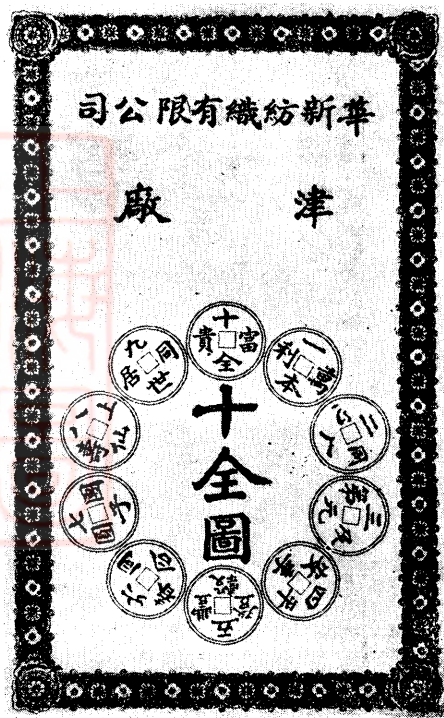 華新紡織有限公司
津廠
十全富貴
一本萬利
二人同心
三元及第
五穀豐登
六合同春
七子團圓
八仙上壽
九世同居
十全圖